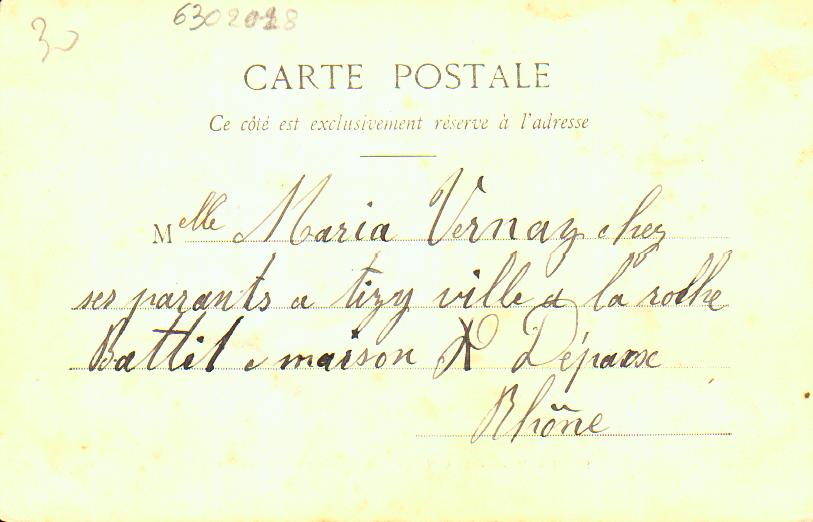 30
6302028
CARTE POSTALE
Ce côté est exclusivement réservé à l'adresse
Melle Maria Vernay chez
ses parants a tizy ville a la roche
Battit maison
Rhône